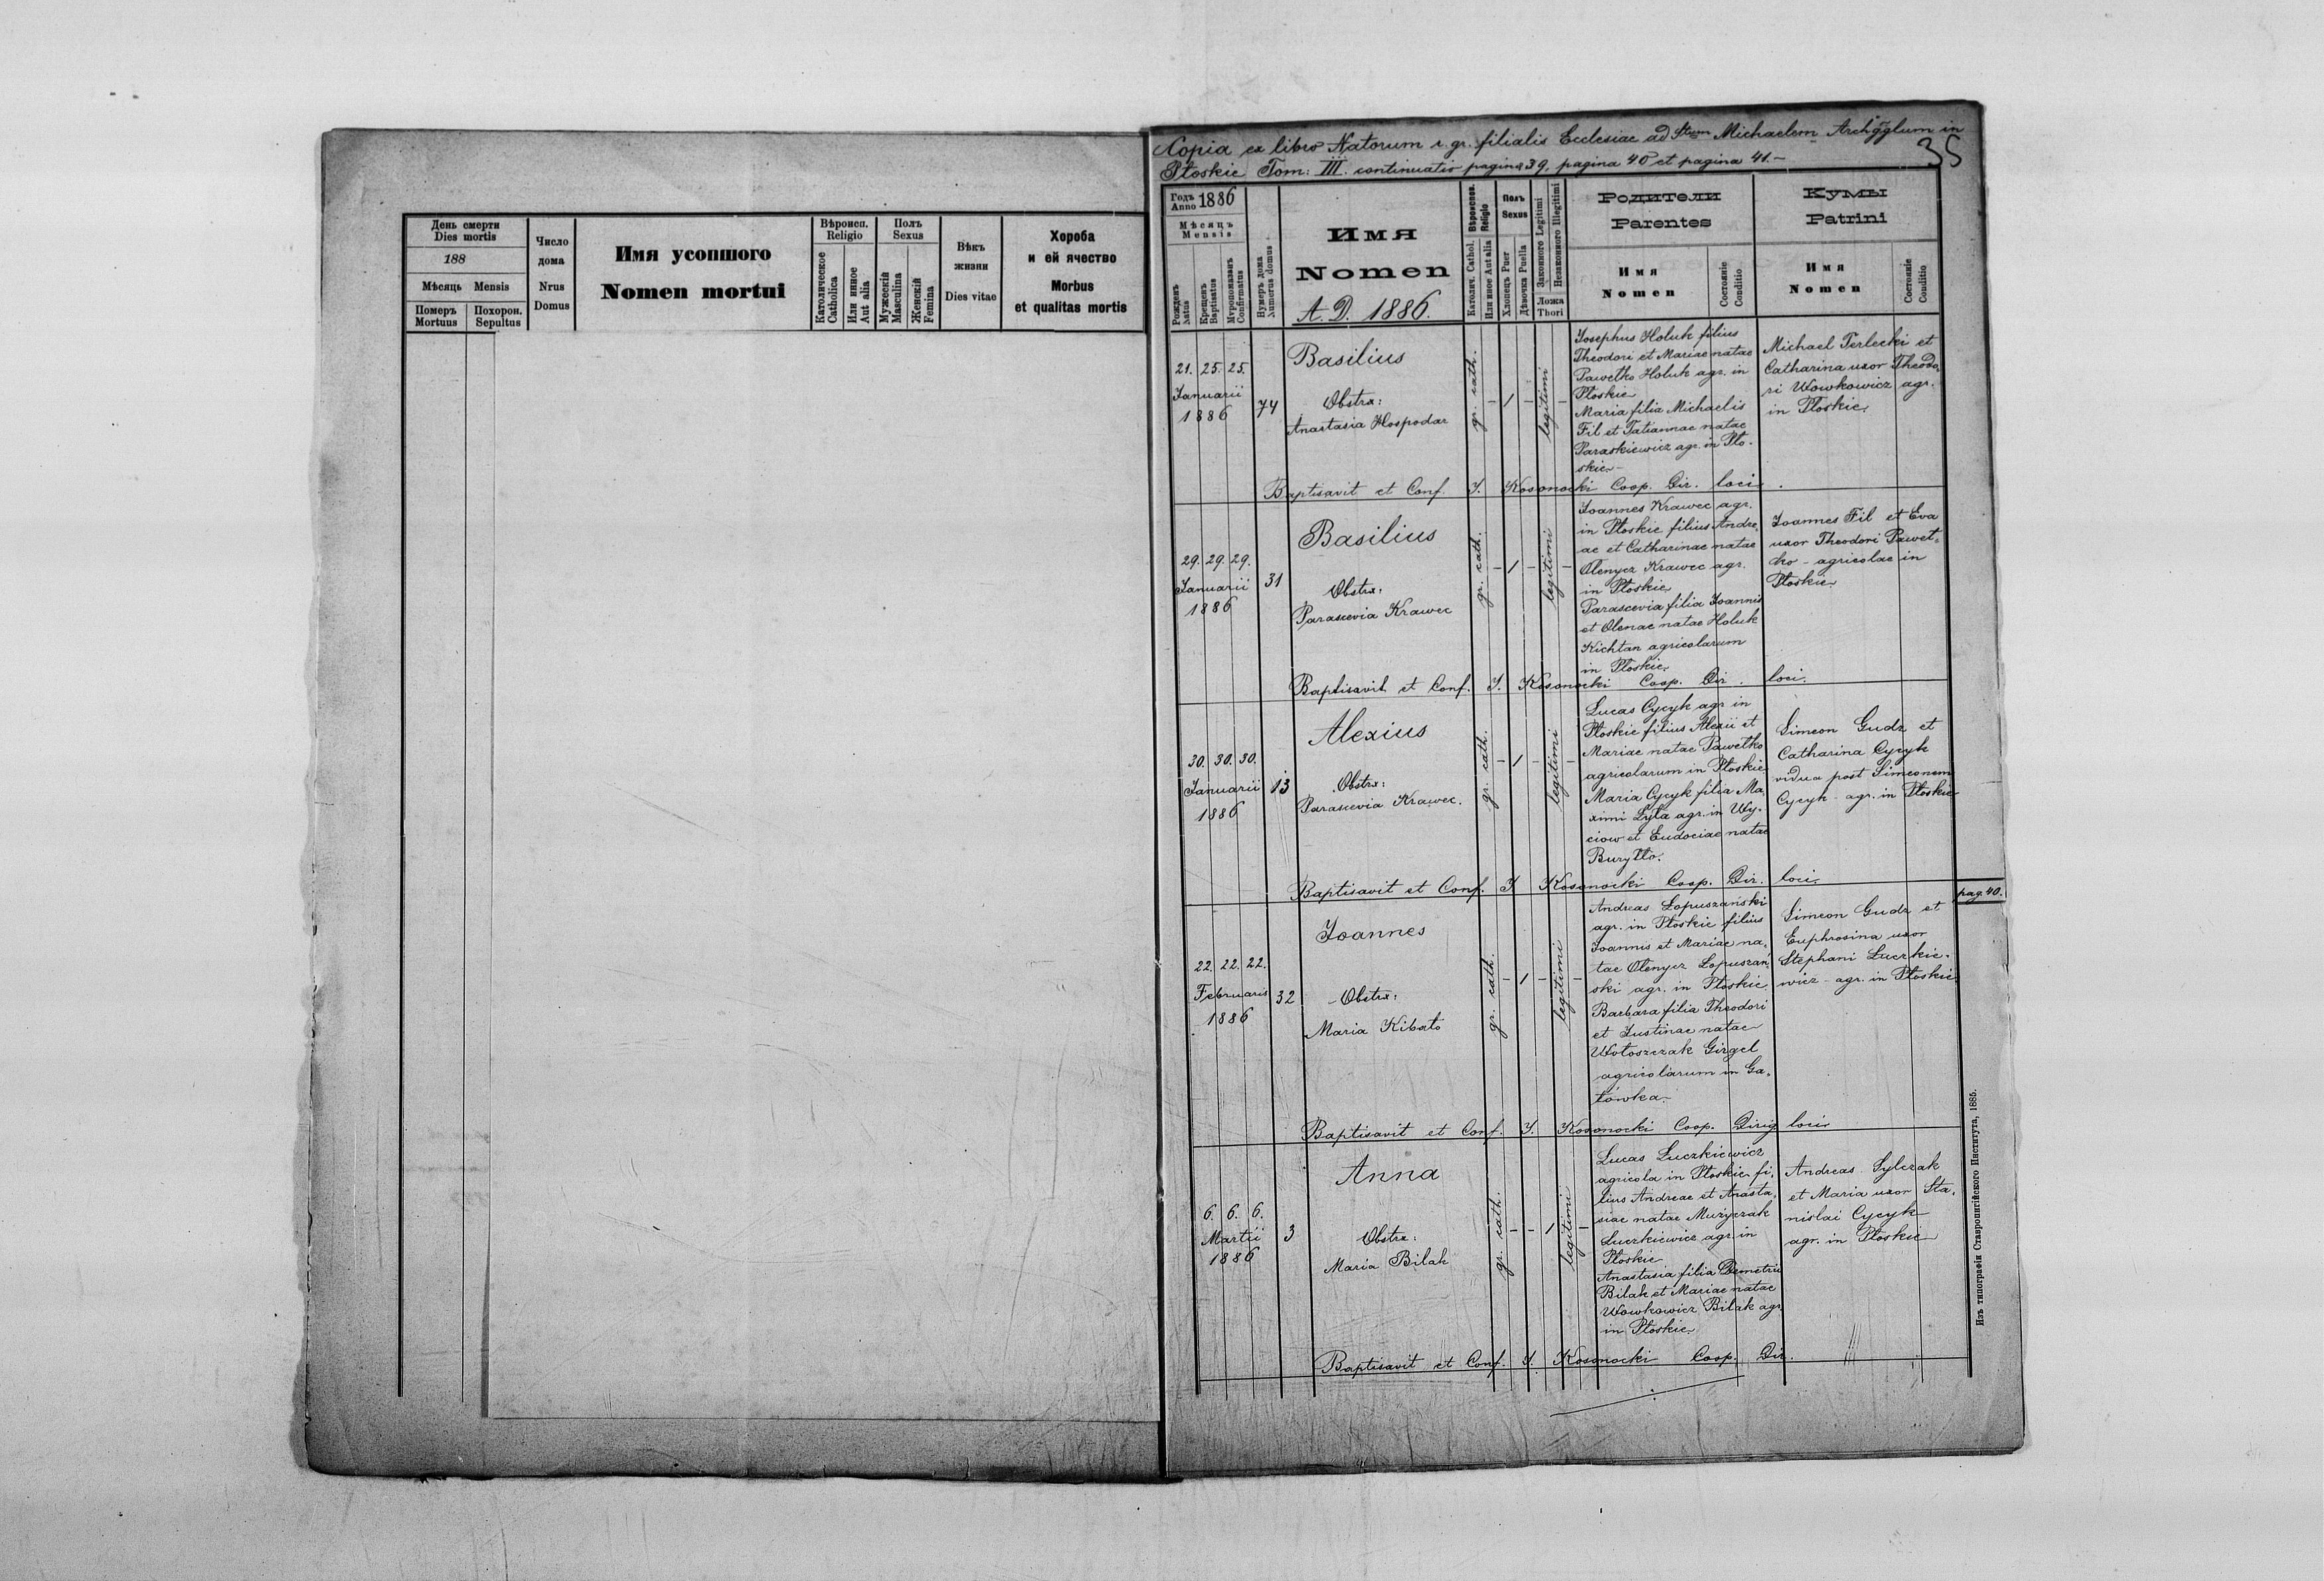 День смерти
Dies mortis
188
Мѣсяць Mensis
Померъ
Mortuus
Похорон.
Sepultus
Число
дома
Nrus
Domus
Имя усопшого
Nomen mortui
Вѣроисп.
Religio
Католическое
Catholica
Или инное
Aut alia
Полъ
Sexus
Мужескій
Masculina
Женскій
Femina
Вѣкъ
жизни
Dies vitae
Хороба
и ей ячество
Morbus
et qualitas mortis
Copia ex libro Natorum r. gr. filialis Ecclesiae ad Stum Michaelem Archgglum in
Płoskie Tom: III. continuatio pagina 39, pagina 40 et pagina 41.-
35
Годъ
Anno 1886
Мѣсяцъ
Mensis
Рожденъ
Natus
Крещенъ
Baptisatus
Мvропомазанъ
Confirmatus
Нумеръ дома
Numerus domus
Имя
Nomen
A. D. 1886.
Вѣроиспов.
Religio
Католич. Cathol.
Или иное Aut alia
Полъ
Sexus
Хлопецъ Puer
Дѣвочка Puella
Законного Legitimi
Незаконного Illegitimi
Ложа
Thori
Родители
Parentes
Имя
Nomen
Состояніе
Conditio
Кумы
Patrini
Имя
Nomen
Состояніе
Conditio
21. 25. 25.
Januarii
1886
74
Basilius
Obstrx:
Anastasia Hospodar
gr. cath.
- 1 - -
legitimi
Josephus Holuk filius
Theodori et Mariae natae
Pawełko Holuk agr. in
Płoskie
Maria filia Michaelis
Fil et Tatiannae natae
Paraskiewicz agr. in Pło-
skie.-
Michael Terlecki et
Catharina uxor Theodo-
ri Wowkowicz agr.
in Płoskie.
Baptisavit et Conf. J. Kosonocki Coop. Dir. loci.
29. 29. 29.
Januarii
1886
31
Basilius
Obstrx:
Parascevia Krawec
gr. cath.
- 1 - -
legitimi
Joannes Krawec agr.
in Płoskie filius Andre-
ae et Catharinae natae
Olenycz Krawec agr.
in Płoskie
Parascevia filia Joannis
et Olenae natae Holuk
Kichtan agricolarum
in Płoskie.
Joannes Fil et Eva
uxor Theodori Paweł-
ko - agricolae in
Płoskie.
Baptisavit et Conf. J. Kosonocki Coop. Dir. loci.
30. 30. 30.
Januarii
1886
13
Alexius
Obstrx:
Parascevia Krawec.
gr. cath.
- 1 - -
legitimi
Lucas Cycyk agr in
Płoskie filius Alexii et
Mariae natae Pawełko
agricolarum in Płoskie
Maria Cycyk filia Ma-
ximi Łyta agr. in Wy-
ciow et Eudociae natae
Buryłło.
Simeon Gudz et
Catharina Cycyk
vidua post Simeonem
Cycyk - agr. in Płoskie
Baptisavit et Conf. J. Kosonocki Coop. Dir. loci.
pag. 40.
22. 22. 22.
Februaris
1886
32
Joannes
Obstrx:
Maria Kibało
gr. cath.
- 1 - -
legitimi
Andreas Łopuszański
agr. in Płoskie filius
Joannis et Mariae na-
tae Olenycz Łopuszań-
ski agr. in Płoskie.
Barbara filia Theodori
et Justinae natae
Wołoszczak Girgel
agricolarum in Ga-
łówka.
Simeon Gudz et
Euphrosina uxor
Stephani Łuczkie-
wicz - agr. in Płoskie
Baptisavit et Conf. J. Kosonocki Coop. Dirig loci.
6. 6. 6.
Martii
1886
3
Anna
Obstrx:
Maria Bilak
gr. cath.
- - 1 -
legitimi
Lucas Łuczkiewicz
agricola in Płoskie fi-
lius Andreae et Anasta-
siae natae Mużyczak
Łuczkiewicz agr. in
Płoskie
Anastasia filia Demetrii
Bilak et Mariae natae
Wowkowicz Bilak agr.
in Płoskie.
Andreas Sylczak
et Maria uxor Sta-
nislai Cycyk
agr. in Płoskie
Baptisavit et Conf. J. Kosonocki Coop. Dir.
Изъ типографіи Ставропигійского Института, 1885.